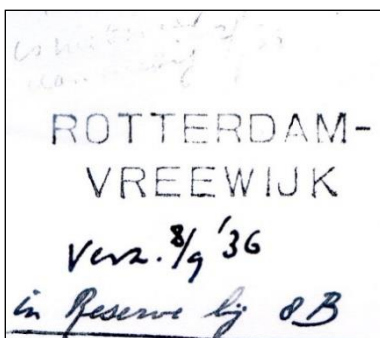 ROTTERDAM-
VREEWIJK
Verz. 8/9 '36
in Reserve bij 8B